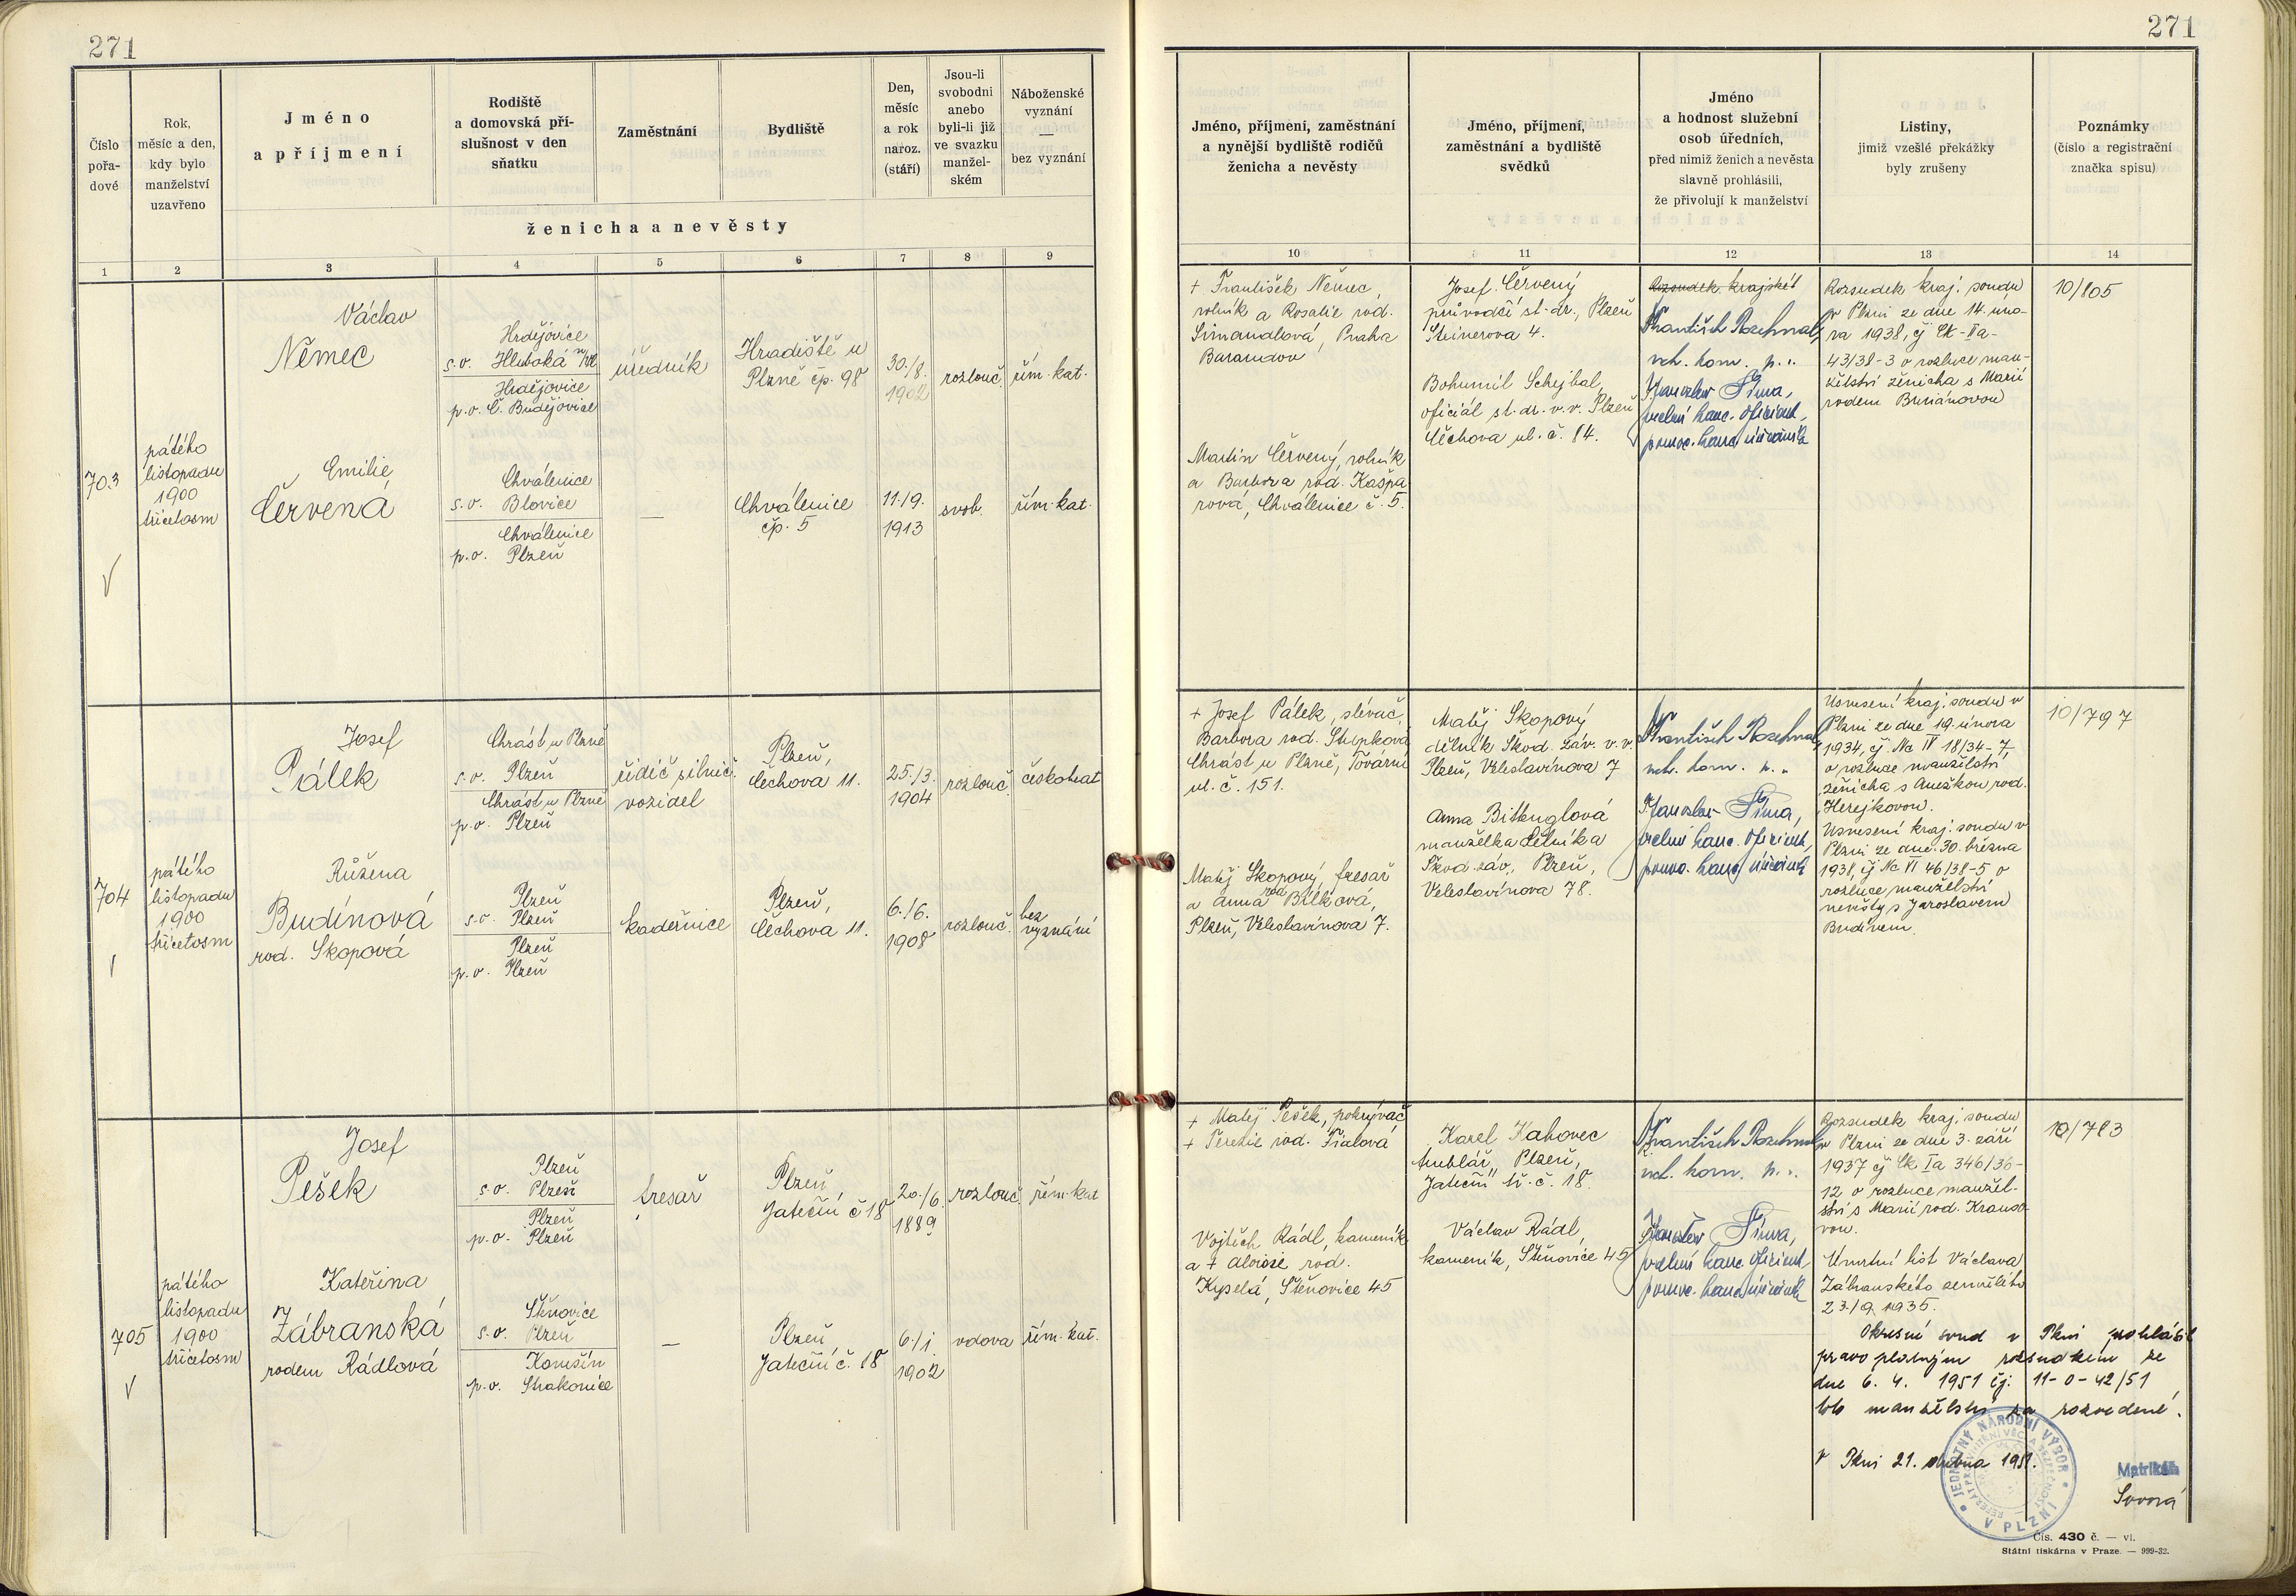 271
271
Číslo
pořa-
dové
Rok,
měsíc a den,
kdy bylo
manželství
uzavřeno
Jméno
a příjmení
Rodiště
a domovská pří-
slušnost v den
sňatku
Zaměstnání
Bydliště
Den,
měsíc
a rok
naroz.
(stáří)
Jsou-li
svobodni
anebo
byli-li již
ve svazku
manžel-
ském
Náboženské
vyznání
—
bez vyznání
ženicha a nevěsty
1 2 3 4 5 6 7 8 9
Jméno, příjmení, zaměstnání
a nynější bydliště rodičů
ženicha a nevěsty
Jméno, příjmení,
zaměstnání a bydliště
svědků
Jméno
a hodnost služební
osob úředních,
před nimiž ženich a nevěsta
slavně prohlásili,
že přivolují k manželství
Listiny,
jimiž vzešlé překážky
byly zrušeny
Poznámky
(číslo a registrační
značka spisu)
10 11 12 13 14
703
pátého
listopadu
1900
třicetosm
Václav
Němec
Hrdějovice
s.o. Hluboká n/Vlt
Hrdějovice
p.o. Č. Budějovice
úředník
Hradiště u
Plzně čp. 98
30./8.
1902
rozlouč.
řím. kat.
Emilie
Červená
Chválenice
s.o. Blovice
Chválenice
p.o. Plzeň
—
Chválenice
čp. 5
11./9.
1913
svob.
řím. kat.
+ František Němec,
rolník a Rosalie rod.
Simandlová, Praha
Barandov
Martin Červený, rolník
a Barbora rod. Kašpa
rová, Chválenice č. 5.
Josef Červený
průvodčí st. dr., Plzeň
Steinerova 4.
Bohumil Schejbal,
oficiál st. dr. v.v. Plzeň
Čechova ul. č. 14.
Rozsudek krajské
František Rozehnal,
vrch. kom. p. s.
Jaroslav Šíma,
vrchní kanc. oficiant,
pomoc. kanc. úředník
Rozsudek kraj. soudu
v Plzni ze dne 14. úno-
ra 1938, čj Ck-IIa-
43/38-3 o rozluce man-
želství ženicha s Marií
rodem Buriánovou
10/805
704
pátého
listopadu
1900
třicetosm
Josef
Pálek
Chrást u Plzně
s.o. Plzeň
Chrást u Plzně
p.o. Plzeň
řidič silnič.
vozidel
Plzeň,
Čechova 11.
25./3.
1904
rozlouč.
českobrat
Růžena
Budínová
rod. Skopová
Plzeň
s.o. Plzeň
Plzeň
p.o. Plzeň
kadeřnice
Plzeň,
Čechova 11.
6./6.
1908
rozlouč.
bez
vyznání
+ Josef Pálek, slévač,
Barbora rod. Štěpková
Chrást u Plzně, Tovární
ul. č. 151.
Matěj Skopový, tesař
a Anna rod. Bílková,
Plzeň, Veleslavínova 7.
Matěj Skopový
dělník Škod. záv. v.v.
Plzeň, Veleslavínova 7
Anna Bittenglová
manželka dělníka
Škod. záv., Plzeň,
Veleslavínova 78.
František Rozehnal,
vrch. kom. p. s.
Jaroslav Šíma,
vrchní kanc. oficiant,
pomoc. kanc. úředník
Usnesení kraj. soudu v
Plzni ze dne 19. února
1934, čj. Nc IV 18/34-7
o rozluce manželství
ženicha s Anežkou rod.
Herejkovou.
Usnesení kraj. soudu v
Plzni ze dne 30. března
1938, čj Nc VI 46/38-5 o
rozluce manželství
nevěsty s Jaroslavem
Budínem.
10/797
705
pátého
listopadu
1900
třicetosm
Josef
Pešek
Plzeň
s.o. Plzeň
Plzeň
p.o. Plzeň
tesař
Plzeň
Jateční č 18
20./6.
1889
rozlouč.
řím. kat
Kateřina
Zábranská
rodem Rádlová
Štěnovice
s.o. Plzeň
Komšín
p.o. Strakonice
—
Plzeň
Jateční č. 18
6./1.
1902
vdova
řím. kat.
+ Matěj Pešek, pokrývač
+ Terezie rod. Fialová
Vojtěch Rádl, kameník
a + Aloisie rod.
Kyselá, Štěnovice 45
Karel Kahovec
truhlář, Plzeň,
Jateční tř. č. 18.
Václav Rádl,
kameník, Štěnovice 45
František Rozehnal,
vrch. kom. p. s.
Jaroslav Šíma,
vrchní kanc. oficiant,
pomoc. kanc. úředník
Rozsudek kraj. soudu
v Plzni ze dne 3. září
1937 čj Ck Ia 346/36-
12 o rozluce manžel-
ství s Marií rod. Krauso
vou.
Úmrtní list Václava
Zábranského zemřelého
23./9. 1935.
10/783
Okresní soud v Plzni prohlásil
pravoplatným rozsudkem ze
dne 6. 4. 1951 čj. 11-0-42/51
toto manželství za rozvedené.
V Plzni 21. dubna 1951.
Matrikář
JEDNOTNÝ NÁRODNÍ VÝBOR
V PLZNI
Čís. 430 č. — vl.
Státní tiskárna v Praze. — 999-32.